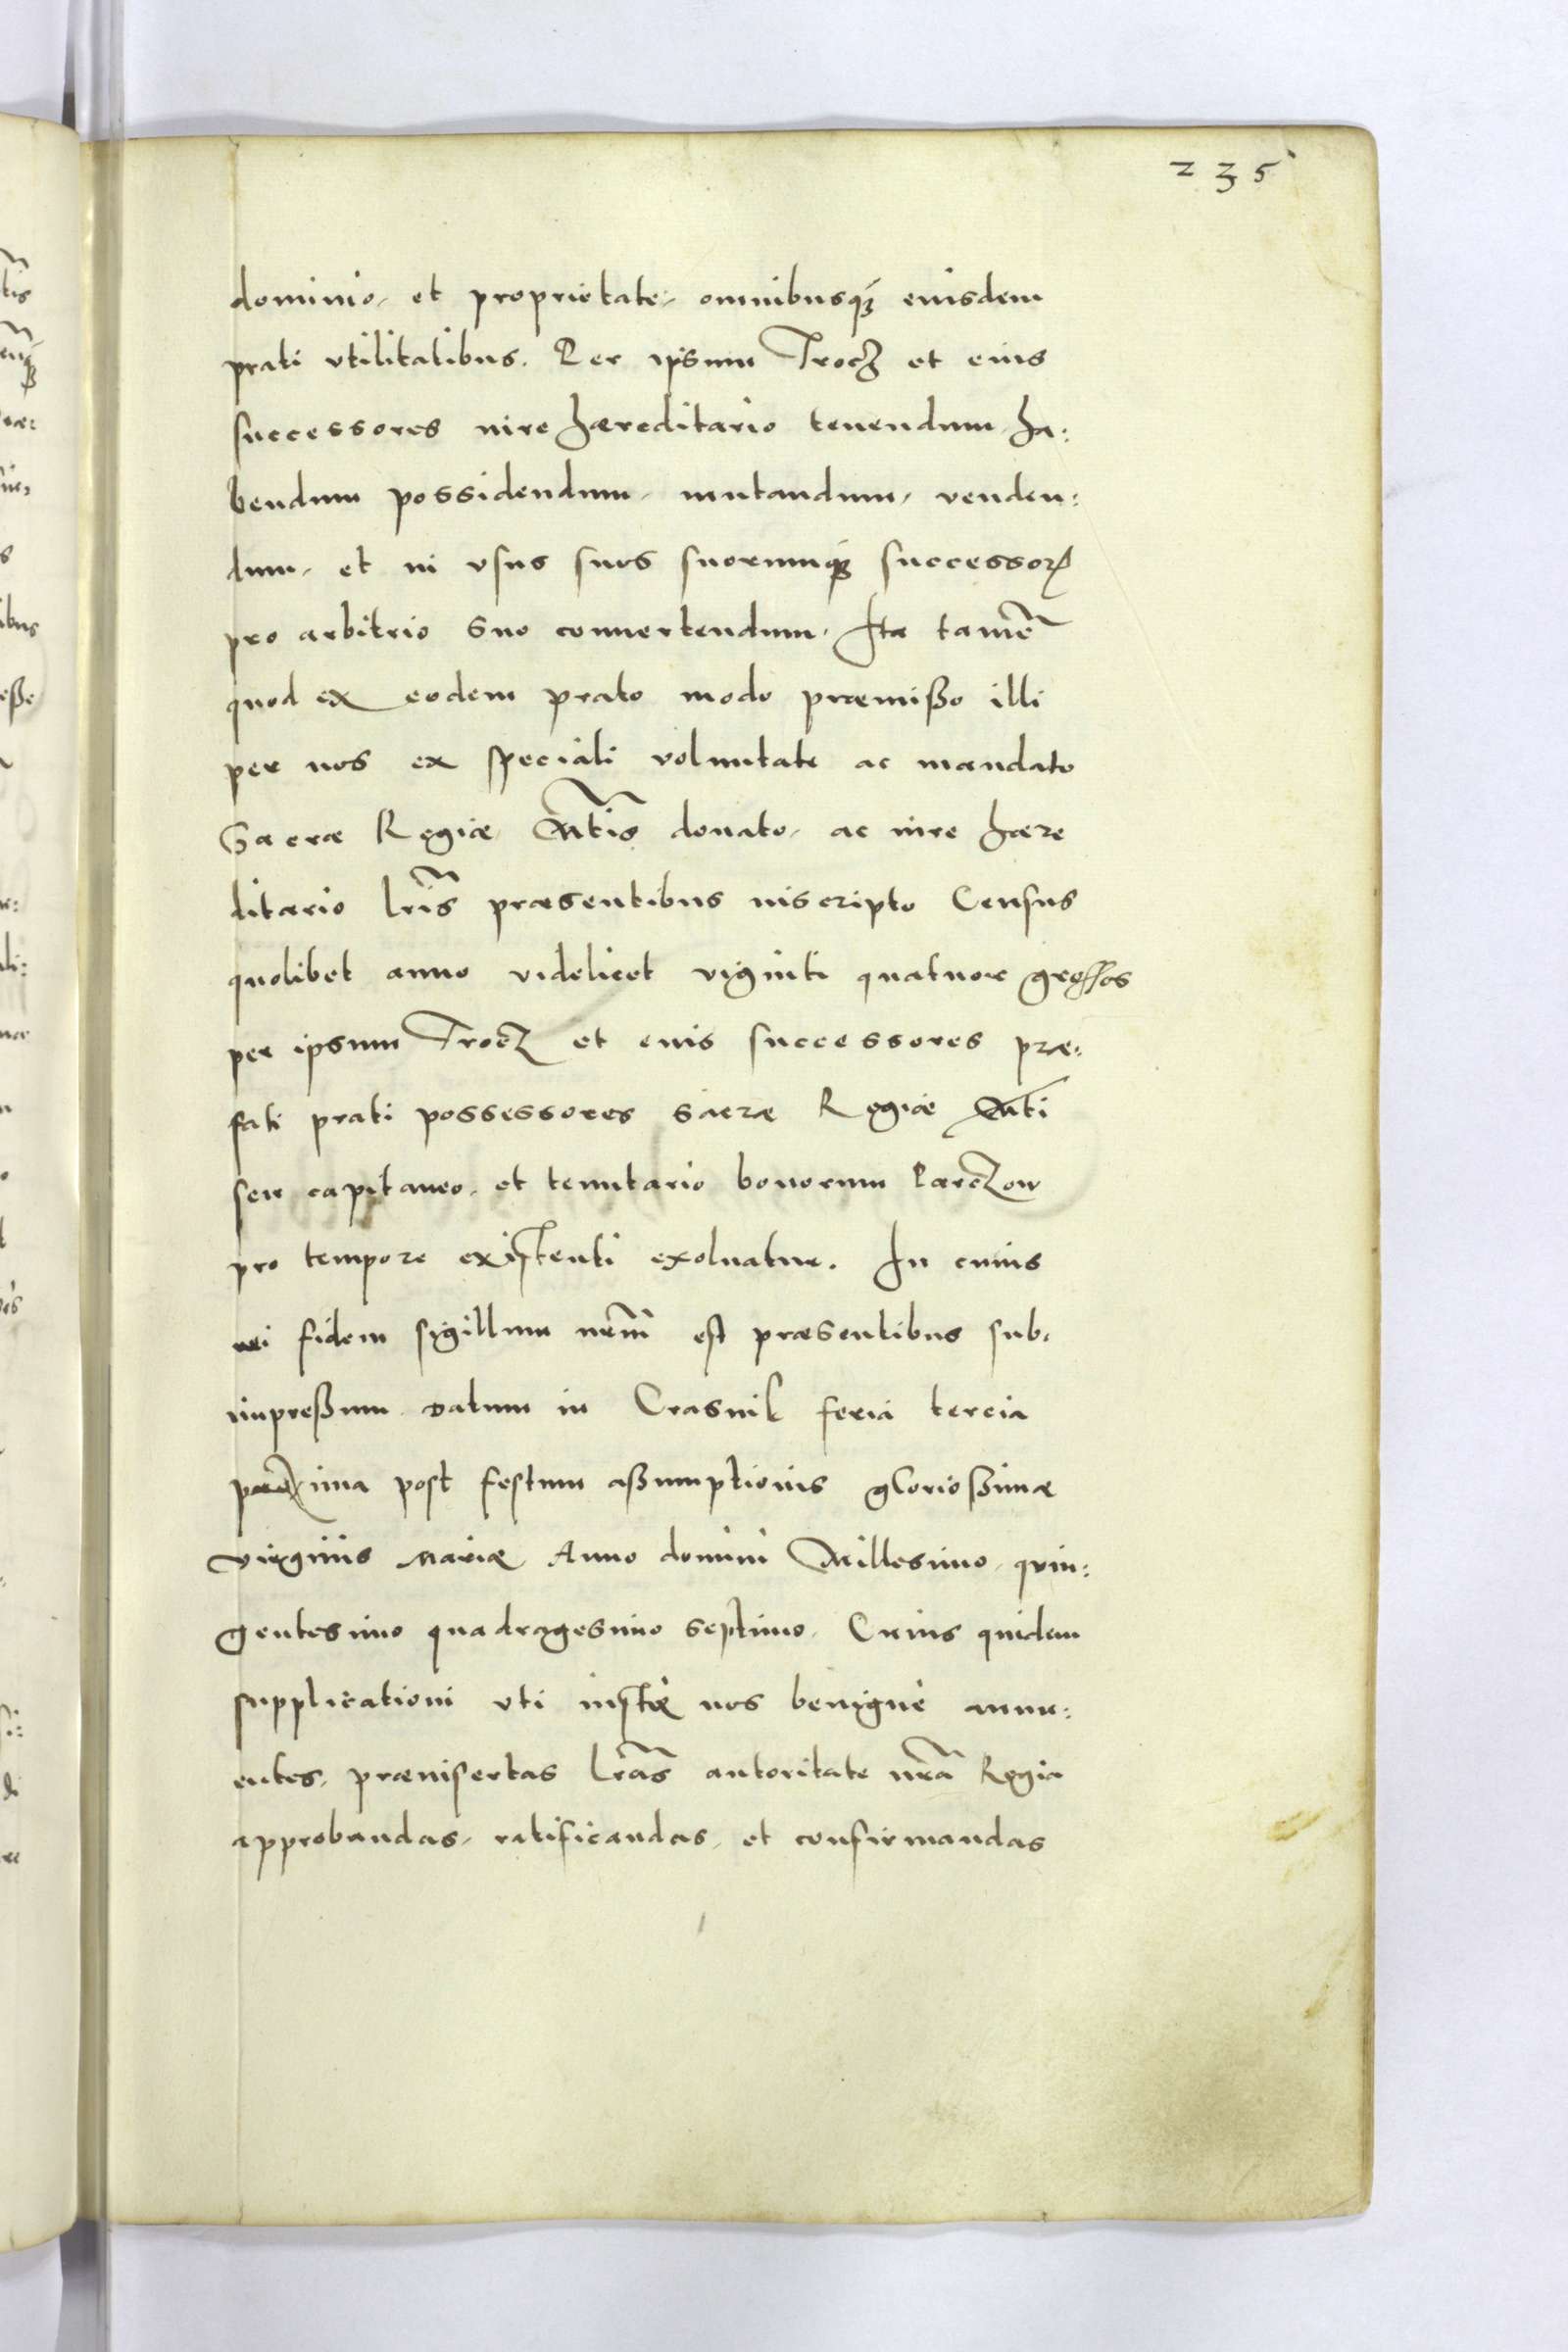 235
dominio, et proprietate, omnibusq́ꝫ eiusdem
prati vtilitatibus. Per ipsum Trocz et eius
successores iure hæreditario tenendum, ha:
bendum possidendum, mutandum, venden:
dum, et in vsus suos suorumqꝫ successoꝝ
pro arbitrio suo conuertendum. Ita tamẽ
quod ex eodem prato modo præmißo illi
per nos ex speciali voluntate ac mandato
Sacræ Regiæ Mtis donato, ac iure hære
ditario lr̃is præsentibus inscripto Census
quolibet anno videlicet viginti quatuor grossos
per ipsum Trocz et eius successores præ:
fati prati possessores sacræ Regiæ Mti
seu capitaneo, et tenutario bonorum Parczow
pro tempore existenti exoluatur. In cuius
rei fidem sigillum nr̃m est præsentibus sub:
impreßum. Datum in Crasnik feria tercia
proxima post festum aßumptionis glorioßimæ
virginis Mariæ Anno domini Millesimo, quin:
gentesimo quadragesimo septimo. Cuius quidem
supplicationi vti iustæ nos benignè annu:
entes, præinsertas lr̃as autoritate nr̃a Regia
approbandas, ratificandas, et confirmandas